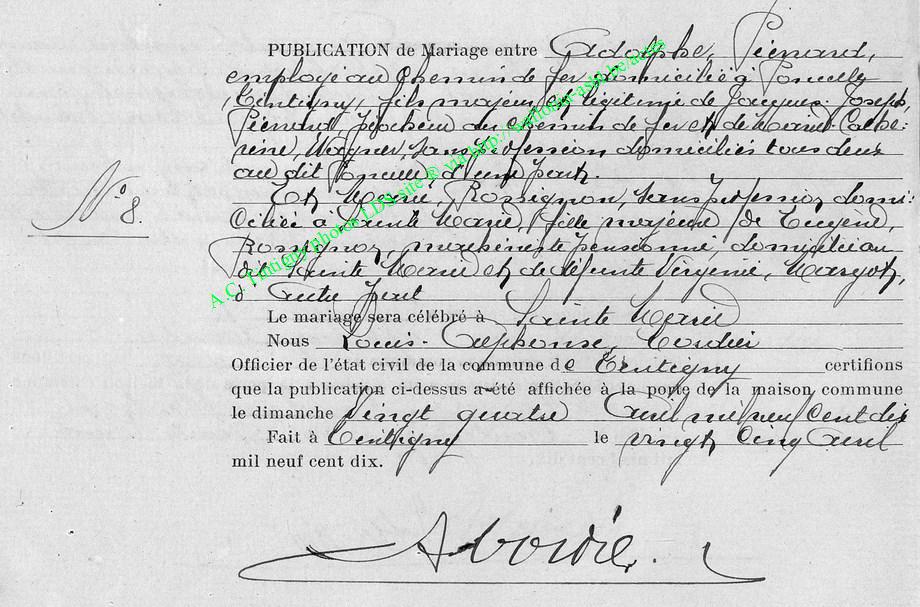 PUBLICATION de Mariage entre Adolphe, Piérard,
employé au chemin de fer domicilié à Poncelle
Tintigny, fils majeur et légitime de Jacques-Joseph,
Piérard, piocheur au chemin de fer et de Marie-Cathe-
rine, Wagner, sans profession domiciliés tous deux
au dit Poncelle, d'une part.
Et Marie, Rossignon, sans profession domi-
ciliée à Sainte Marie, fille majeure de Eugène,
Rossignon, pensionné domicilié au
dit Sainte Marie et de défunte Virginie, Margot,
d'autre part
N° 8.
Le mariage sera célébré à Sainte Marie
Nous Louis-Alphonse, Bordié
Officier de l'état civil de la commune de Tintigny certifions
que la publication ci-dessus a été affichée à la porte de la maison commune
le dimanche vingt quatre Avril mil neuf cent dix
Fait à Tintigny le vingt cinq Avril
mil neuf cent dix.
A.C. Tintigny photos LDS site @ via http://